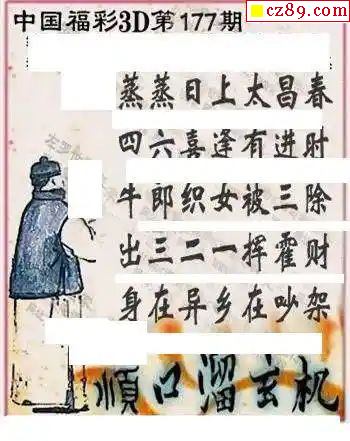 cz89.com
中国福彩3D第177期
蒸蒸日上太昌春
四六喜逢有进时
牛郎织女被三除
出三二一挥霍财
身在异乡在吵架
順口溜玄机